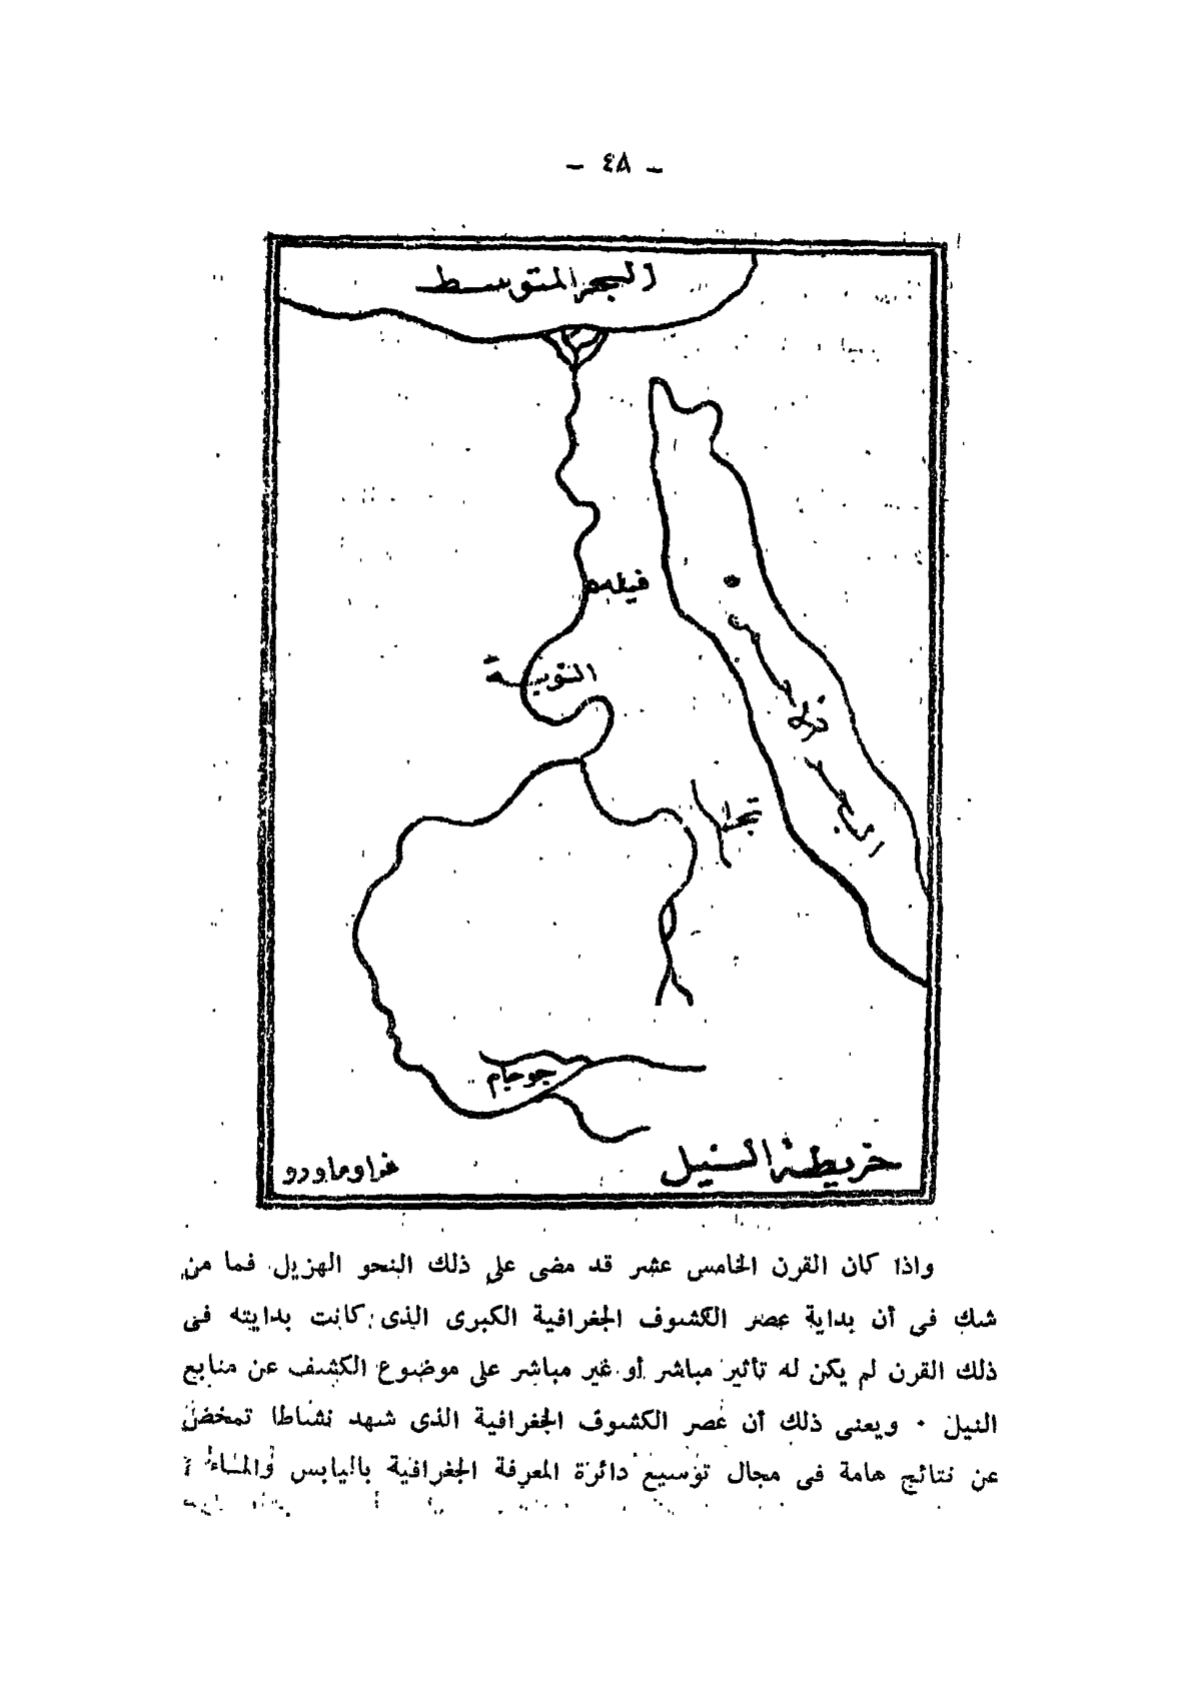 - ٤٨ -
البحر المتوسط
فيله
النوبية
البحر الأحمر
جوجام
خريطة النيل
فراوماورو
واذا كان القرن الخامس عشر قد مضى على ذلك النحو الهزيل فما من
شك فى أن بداية عصر الكشوف الجغرافية الكبرى الذى كانت بدايته فى
ذلك القرن لم يكن له تأثير مباشر أو غير مباشر على موضوع الكشف عن منابع
النيل ٠ ويعنى ذلك أن عصر الكشوف الجغرافية الذى شهد نشاطا تمخض
عن نتائج هامة فى مجال توسيع دائرة المعرفة الجغرافية باليابس والماء